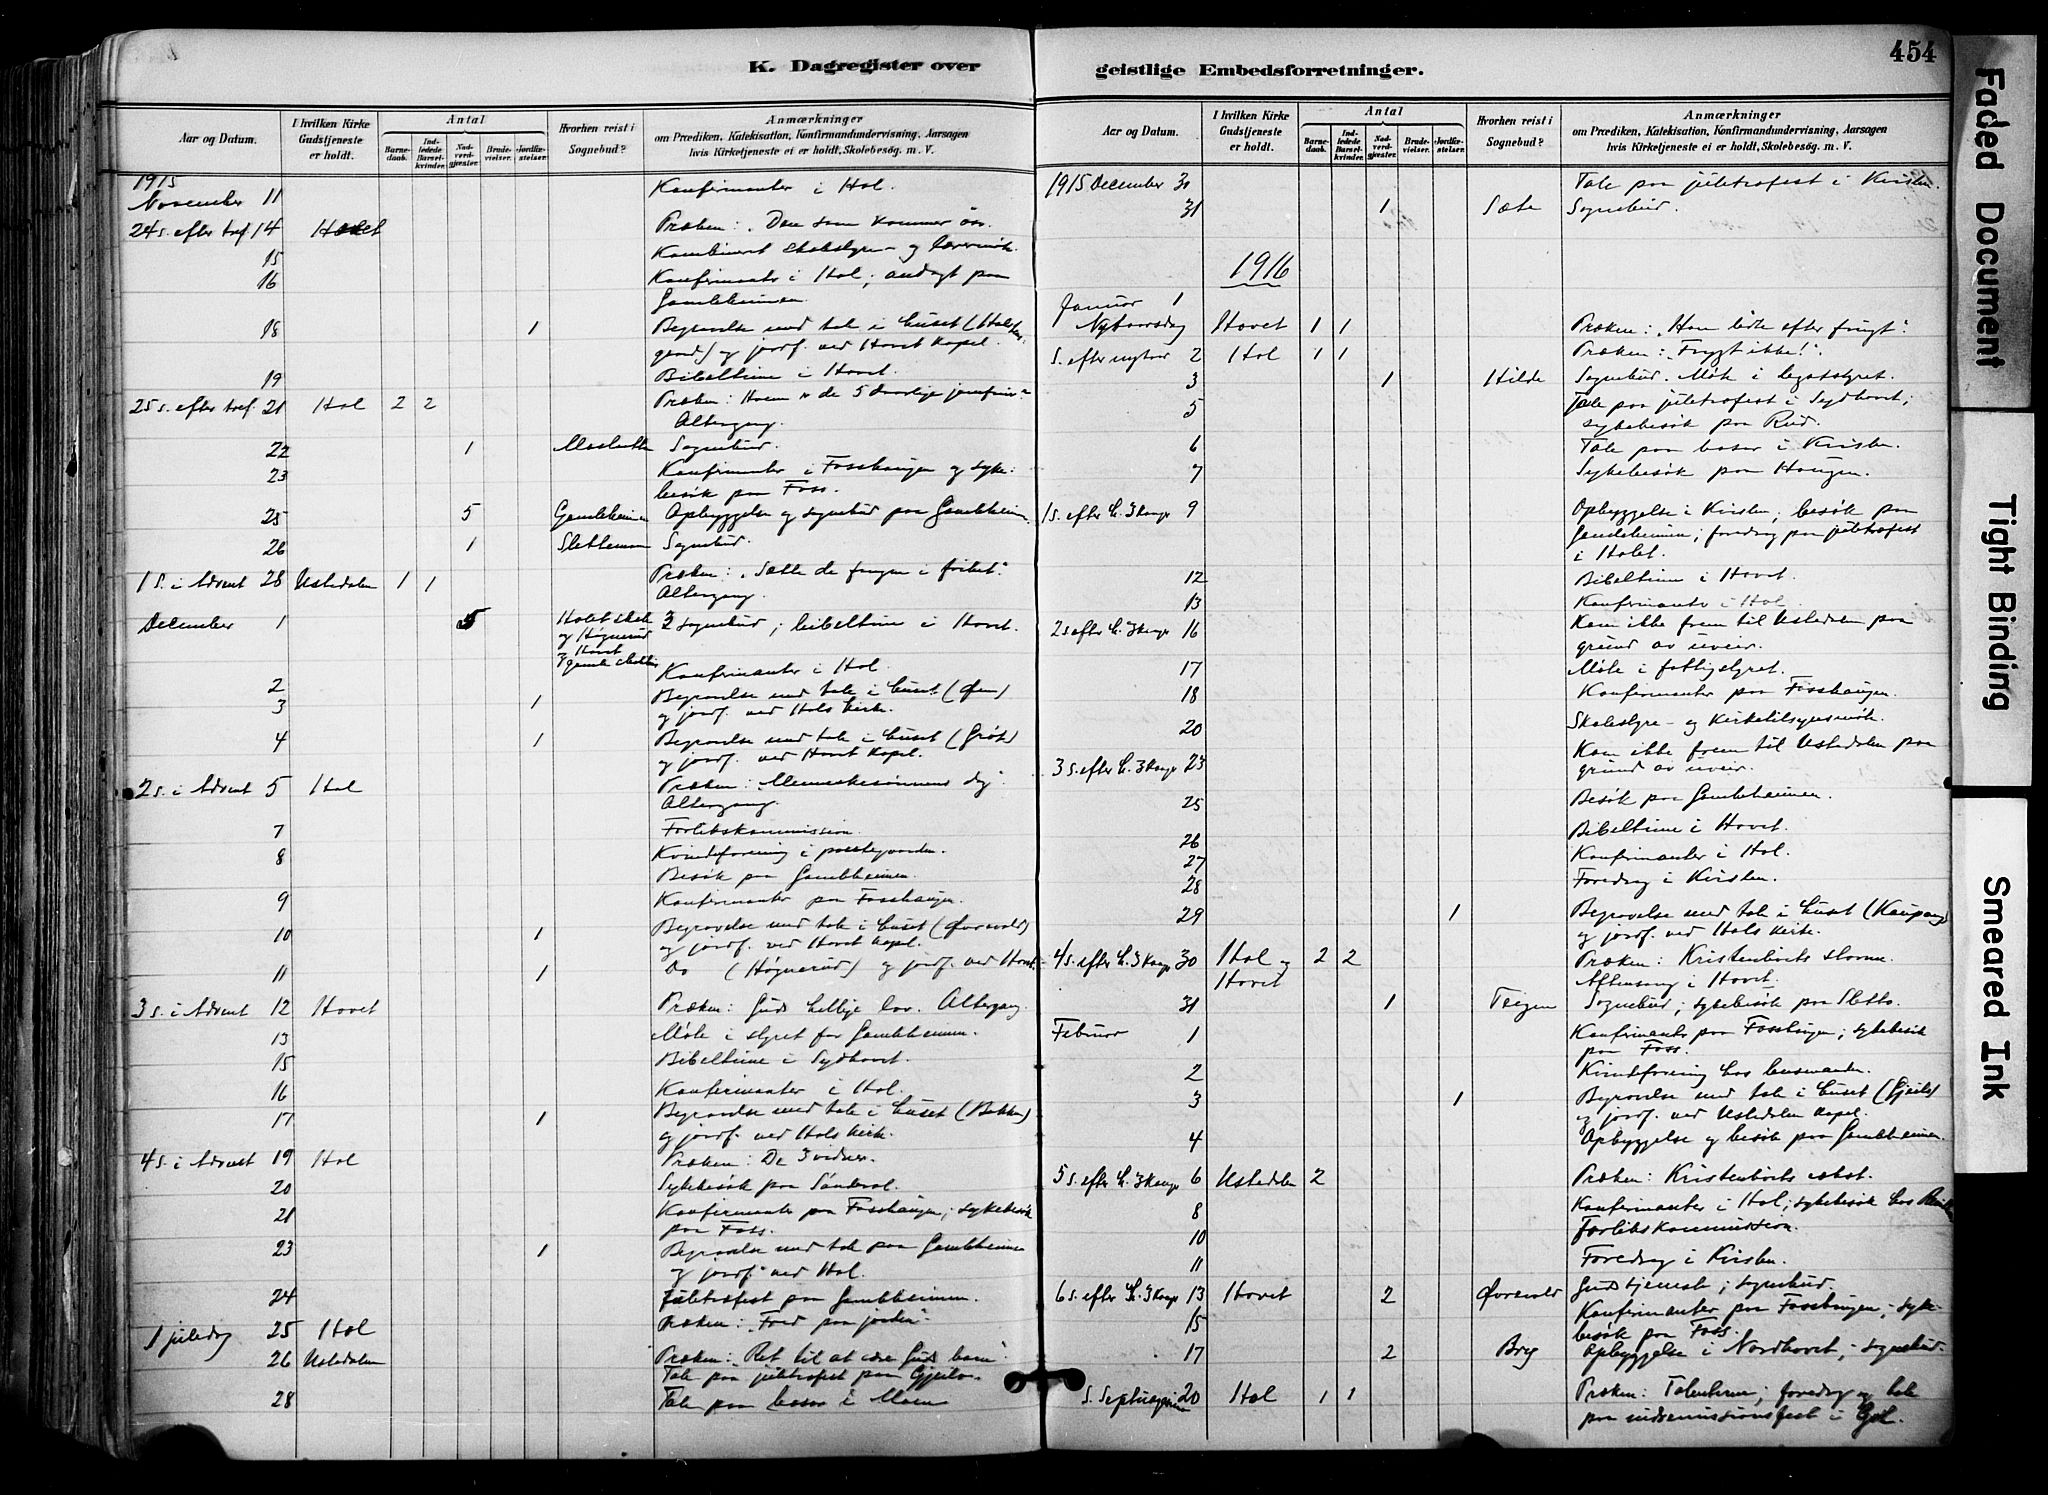 K. Dagregister over
geistlige Embedsforretninger.
454
Aar og Datum.
I hvilken Kirke Gudstjeneste er holdt.
Antal
Barnedaab.
Indledede Barselkvinder.
Nadverdgjester.
Brudevielser.
Jordfæstelser.
Hvorhen reist i Sognebud?
Anmærkninger
om Prædiken, Katekisation, Konfirmandundervisning, Aarsagen
hvis Kirketjeneste ei er holdt, Skolebesøg. m. V.
1915
November 11 Konfirmanter i Hol.
24 s. efter tref. 14 Hovet Præken: "Den som kommer
15 Kombinert skolestyre- og lærermøte.
16 Konfirmanter i Hol; andagt paa
Gamleheimen.
18 1 Begravelse med tale i huset
og jordf. ved Hovet kapel.
19 Bibeltime i Hovet.
25 s. efter tref. 21 Hol 2 2 Præken: Hvem er de 5 daarlige jomfruer
Altergang.
22 1 Sognebud.
23 Konfirmanter i Fosshaugen og syke-
besøk paa Foss.
25 5 Gamleheimen Opbyggelse og sognebud paa Gamleheimen
26 1 Slettemoen Sognebud.
1 s. i Advent 28 Ustedalen 1 1 Præken: "Sætte de fangne i frihet".
Altergang.
December 1 5 Holet skole 3 sognebud; bibeltime i Hovet.
og Høgnerud
og Hovet
gamle
2 Konfirmanter i Hol.
3 1 Begravelse med tale i huset
og jordf. ved Hols kirke.
4 1 Begravelse med tale i huset (Grøt)
og jordf. ved Hovet kapel.
2 s. i Advent 5 Hol Præken: Menneskesønnens dag.
Altergang.
7 Forlikskommission.
8 Kvindeforening i prestegaarden.
Besøk paa Gamleheimen.
9 Konfirmanter paa Fosshaugen.
10 1 Begravelse med tale i huset (Øvrevold)
og jordf. ved Hovet kapel.
11 1 Do (Høgnerud) og jordf. ved Hovet
3 s. i Advent 12 Hovet Præken: Guds hellige lov. Altergang.
13 Møte i styret for Gamleheimen.
15 Bibeltime i Sydhovet.
16 Konfirmanter i Hol.
17 1 Begravelse med tale i huset (Bakken)
og jordf. ved Hols kirke.
4 s. i Advent 19 Hol Præken: De 3 vidner.
20 Sykebesøk paa Sønderal.
21 Konfirmanter paa Fosshaugen; sykebesøk
paa Foss.
23 1 Begravelse med tale paa Gamleheimen
og jordf. ved Hol.
24 Juletræfest paa Gamleheimen.
1 juledag 25 Hol Præken: "Fred paa jorden".
26 Ustedalen Præken: "Ret til at være Guds barn"
Tale paa juletræfest paa Gjeilo.
28 Tale paa basar i Moen
Aar og Datum.
I hvilken Kirke Gudstjeneste er holdt.
Antal
Barnedaab.
Indledede Barselkvinder.
Nadverdgjester.
Brudevielser.
Jordfæstelser.
Hvorhen reist i Sognebud?
Anmærkninger
om Prædiken, Katekisation, Konfirmandundervisning, Aarsagen
hvis Kirketjeneste ei er holdt, Skolebesøg. m. V.
1915 December 30 Tale paa juletræfest i Kvislen.
31 1 Sæte Sognebud.
1916
Januar 1
Nytaarsdag Hovet 1 1 Præken: "Han ledte efter frugt".
S. efter nytaar 2 Hol 1 1 Præken: "Frygt ikke!".
3 1 Hilde Sognebud. Møte i legatstyret.
5 Tale paa juletræfest i Sydhovet;
sykebesøk paa Rud.
6 Tale paa basar i Kvislen.
7 Sykebesøk paa Haugen.
1 s. efter H. 3 Konge 9 Opbyggelse i Kvislen; besøk paa
Gamleheimen; foredrag paa juletræfest
i Holet.
12 Bibeltime i Hovet.
13 Konfirmanter i Hol.
2 s. efter H. 3 Konge 16 Kom ikke frem til Ustedalen paa
grund av uveir.
17 Møte i fattigstyret.
18 Konfirmanter paa Fosshaugen.
20 Skolestyre- og Kirketilsynsmøte.
3 s. efter H. 3 Konge 23 Kom ikke frem til Ustedalen paa
grund av uveir.
25 Besøk paa Gamleheimen.
26 Bibeltime i Hovet.
27 Konfirmanter i Hol.
28 Foredrag i Kvislen.
29 1 Begravelse med tale i huset (Kaupang)
og jordf. ved Hols kirke.
4 s. efter H. 3 Konge 30 Hol og 2 2 Præken: Kristenlivets
Hovet Aftensang i Hovet.
31 1 Teigen Sognebud; sykebesøk paa Sletto.
Februar 1 Konfirmanter paa Fosshaugen; sykebesøk
paa Foss.
2 Kvindeforening hos
3 1 Begravelse med tale i huset (Gjeilo)
og jordf. ved Ustedalen kapel.
4 Opbyggelse og besøk paa Gamleheimen.
5 s. efter H. 3 Konge 6 Ustedalen 2 Præken: Kristenlivets vekst.
8 Konfirmanter i Hol; sykebesøk hos
10 Forlikskommission.
11 Foredrag i Kvislen.
6 s. efter H. 3 Konge 13 Hovet 2 Øvrevold Gudstjeneste; sognebud.
15 Konfirmanter paa Fosshaugen; syke-
besøk paa Foss.
17 2 Bry Opbyggelse i Nordhovet; sognebud.
S. Septuagesima 20 Hol 1 1 Præken: Talenterne; foredrag og tale
paa indremissionsfest i Gol.
Faded Document
Tight Binding
Smeared Ink